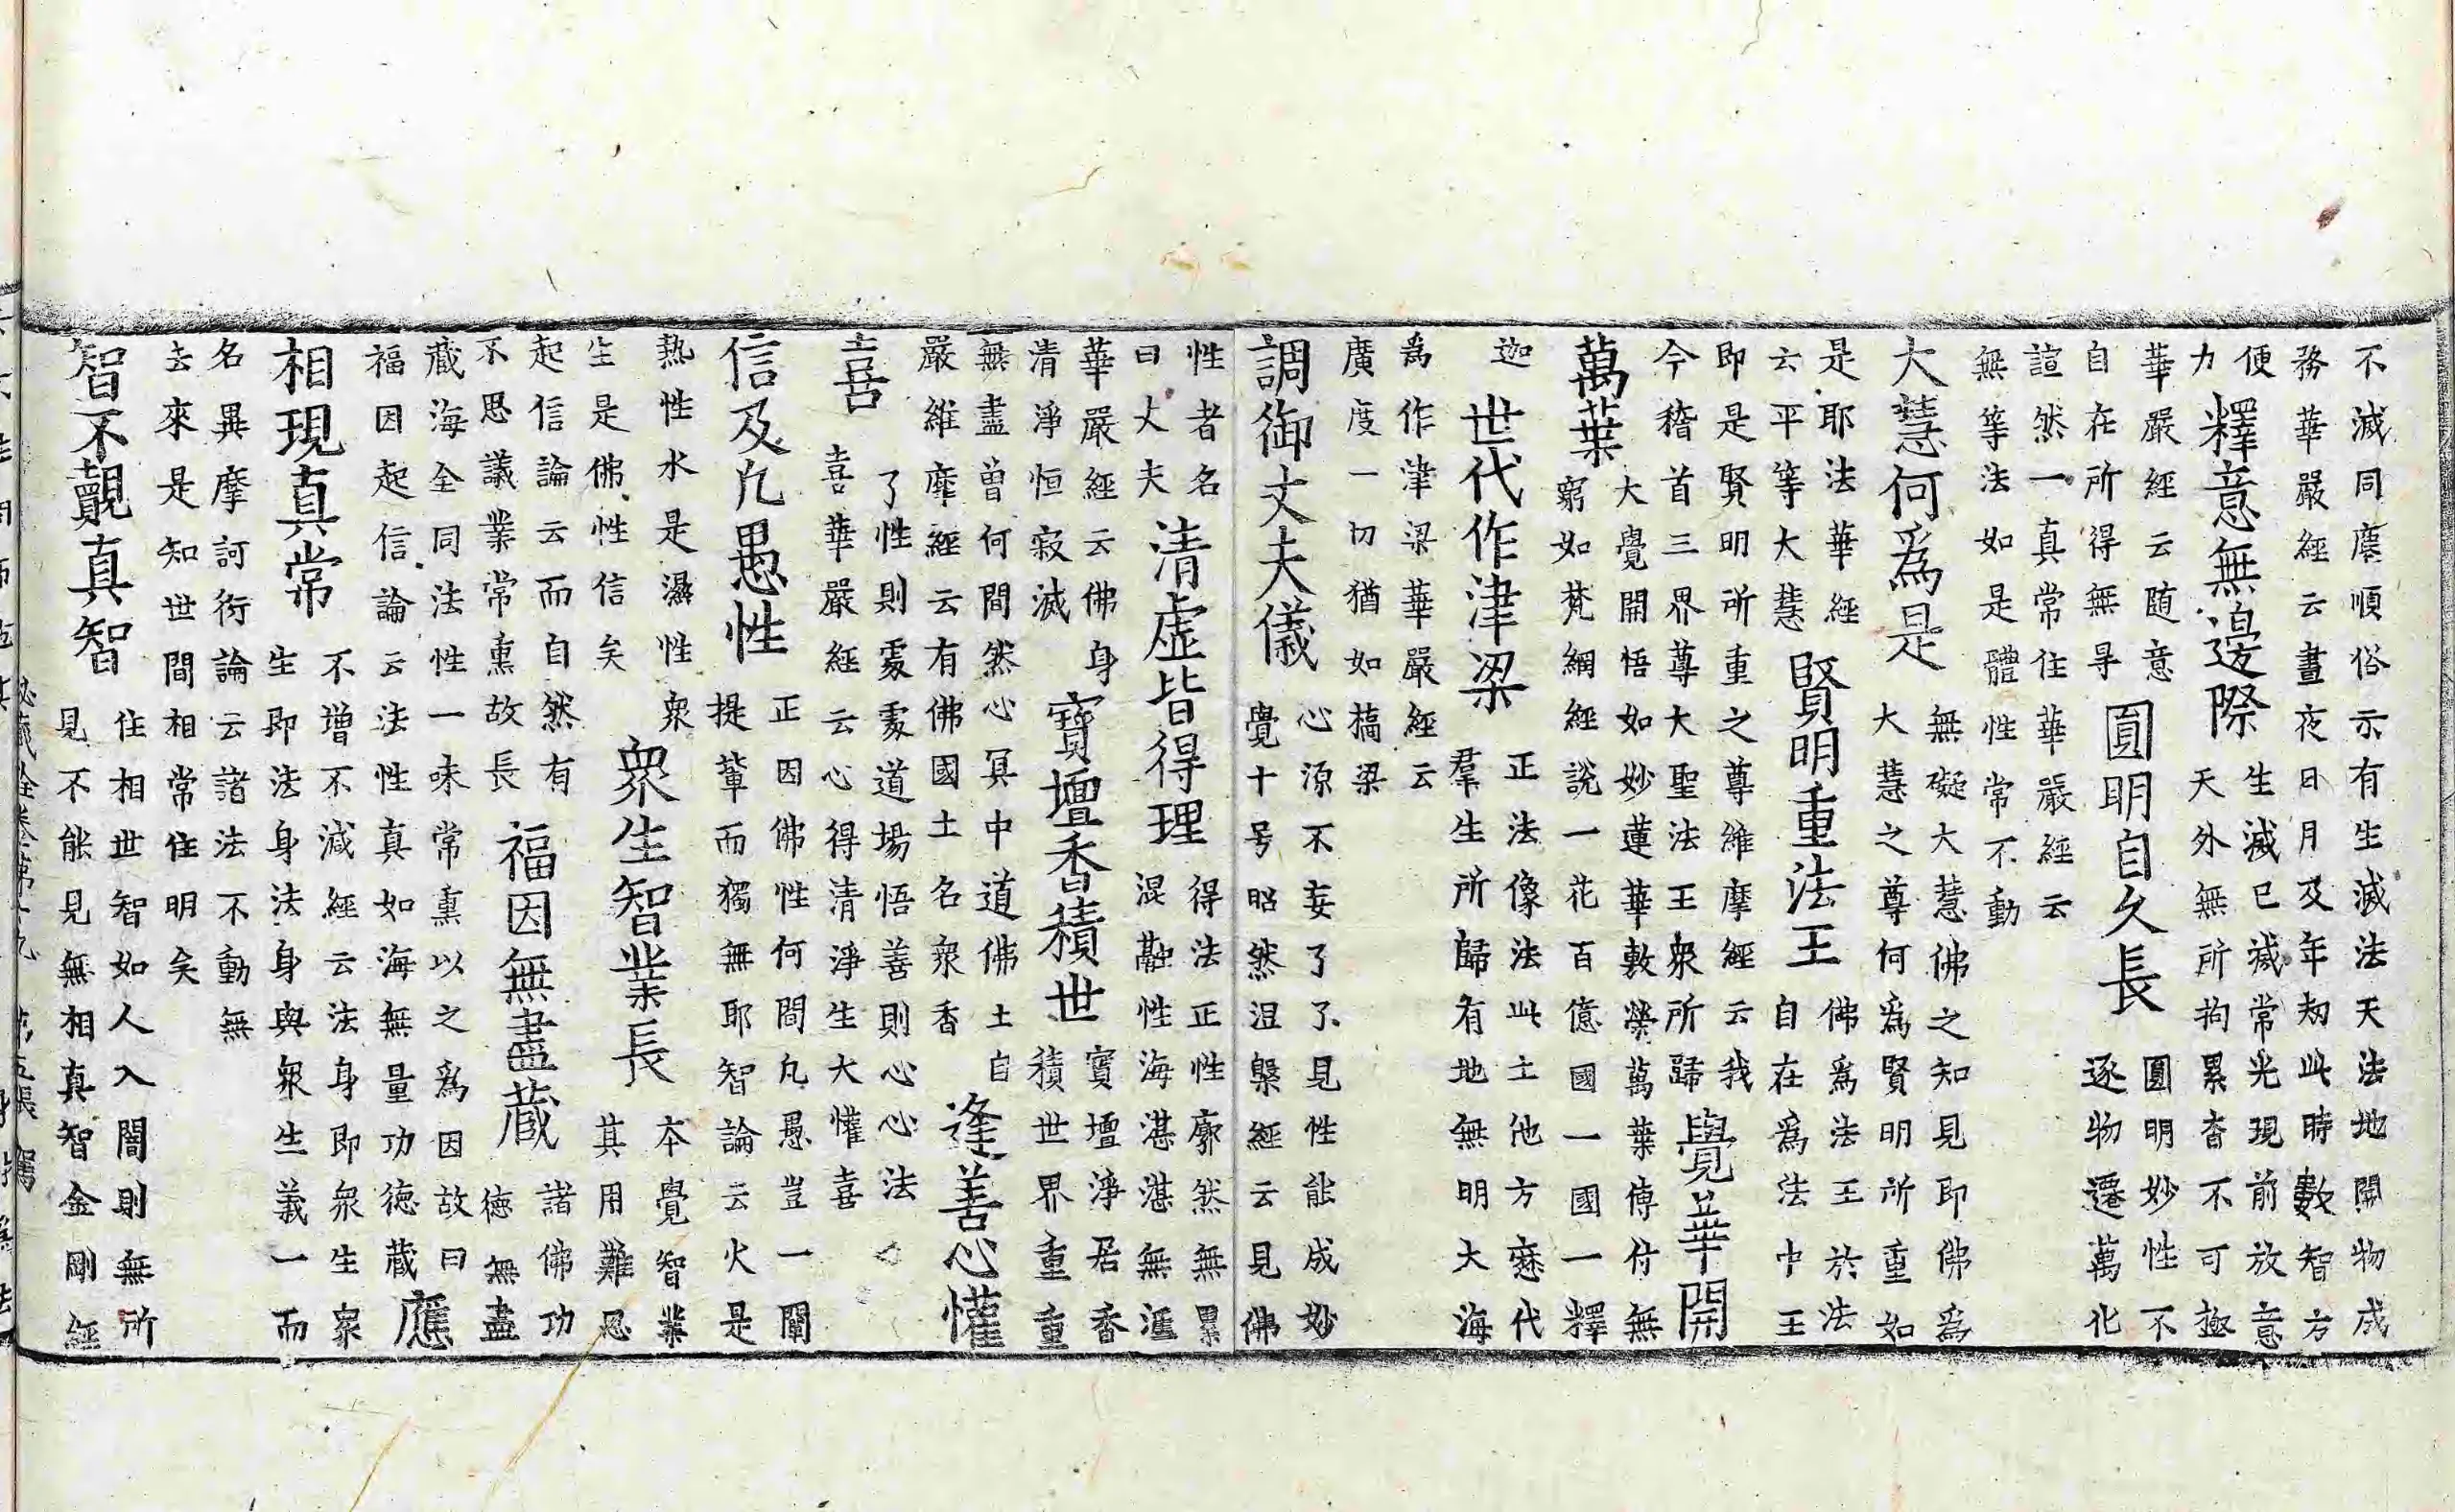 不滅同塵順俗示有生滅法天法地開物成
務華嚴經云晝夜日月及年刼此時數智方
便
力
釋意無邊際
生滅已滅常光現前放意
天外無所拘累杳不可極
華嚴經云随意
自在所得無㝵
圓明自久長
圓明妙性不
逐物遷萬化
諠然一真常住華嚴經云
無等法如是體性常不動
大慧何爲是
無礙大慧佛之知見即佛爲
大慧之尊何爲賢明所重如
是耶法華經
云平等大慧
賢明重法王
佛爲法王於法
自在爲法中王
即是賢明所重之尊維摩經云我
今稽首三界尊大聖法王衆所歸
覺華開
萬葉
大覺開悟如妙蓮華敷榮萬葉傳付無
窮如梵網經說一花百億國一國一釋
迦
世代作津梁
正法像法此土他方代
羣生所歸有地無明大海
爲作津梁華嚴經云
廣度一切猶如搞梁
調御丈夫儀
心源不妄了了見性能成妙
覺十号昭然涅槃經云見佛
性者名
曰丈夫
清虛皆得理
得法正性廓然無累
混融性海湛湛無涯
華嚴經云佛身
清淨恒寂滅
寶壇香積世
寶壇淨居香
積世界重重
無盡曽何間然心冥中道佛土自
嚴維摩經云有佛國土名衆香
逢善心懽
喜
了性則處處道場悟善則心心法
喜華嚴經云心得清淨生大懽喜
信及凡愚性
正因佛性何間凡愚豈一闡
提輩而獨無耶智論云火是
熱性水是濕性衆
生是佛性信矣
衆生智業長
本覺智業
其用難思
起信論云而自然有
不思議業常熏故長
福因無盡藏
諸佛功
德無盡
藏海全同法性一味常熏以之爲因故曰
福因起信論云法性真如海無量功德藏
應
相現真常
不增不減經云法身即衆生衆
生即法身法身與衆生義一而
名異摩訶衍論云諸法不動無
去來是知世間相常住明矣
智不覩真智
住相世智如人入闇則無所
見不能見無相真智金剛經
秘藏詮卷第十九 第五張 駕